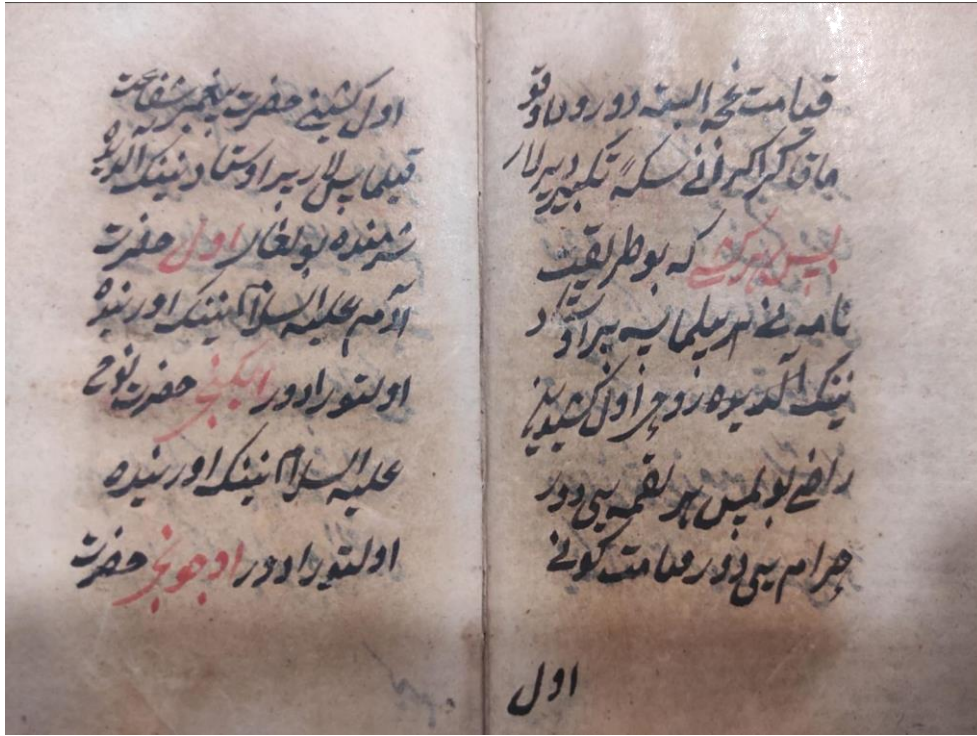 قیامت غچه البته دورور اوقو
ماقا کراکرانی سکز تکبیر دیرلار
پس هر کشی که بو طریقیت
نامه نی بیلماسه بیر اوستاد
نینک آلدیده روحی اول کشیدین
راضی بولمس هر لقمه یی دور
حرام یی دور قیامت کونی
اول
اول کشینی حضرت پیغمبر شفاعت
قیلماس لار بیر اوستاد نینک آلدیده
شرمنده بولغای اول حضرت
آدم علیه السلام نینک اورنیده
اولتورادور ایکنجی حضرت نوح
علیه السلام نینک اورنیده
اولتورادور اوچونجی حضرت